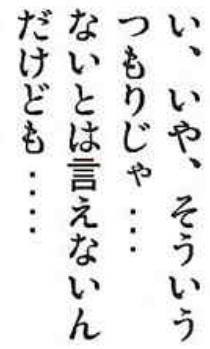 い、いや、そういう
つもりじゃ・・・
ないとは言えないん
だけども・・・・